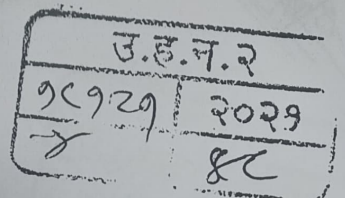 उ.ह.न.२
१८९२१ २०२१
४ ४८